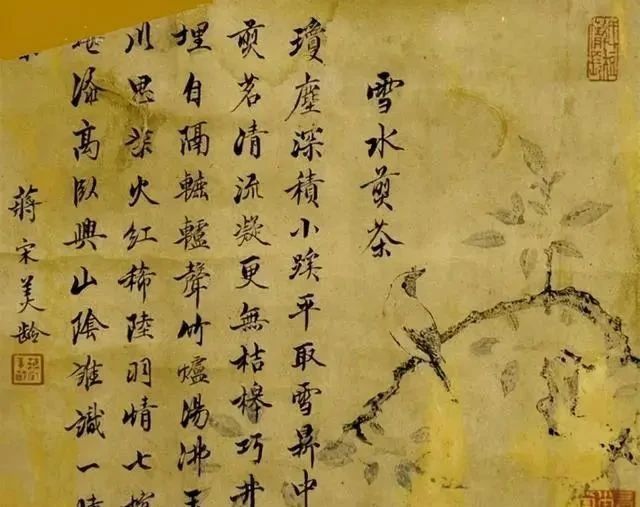 雪水煎茶
瓊塵深積小蹊平取雪鼎中
煎茗清流凝更無桔槔巧井
埋自隔轆轤聲竹爐湯沸玉
川思葉火紅稀陸羽情七椀
添高臥興山陰誰識一時
蔣宋美齡